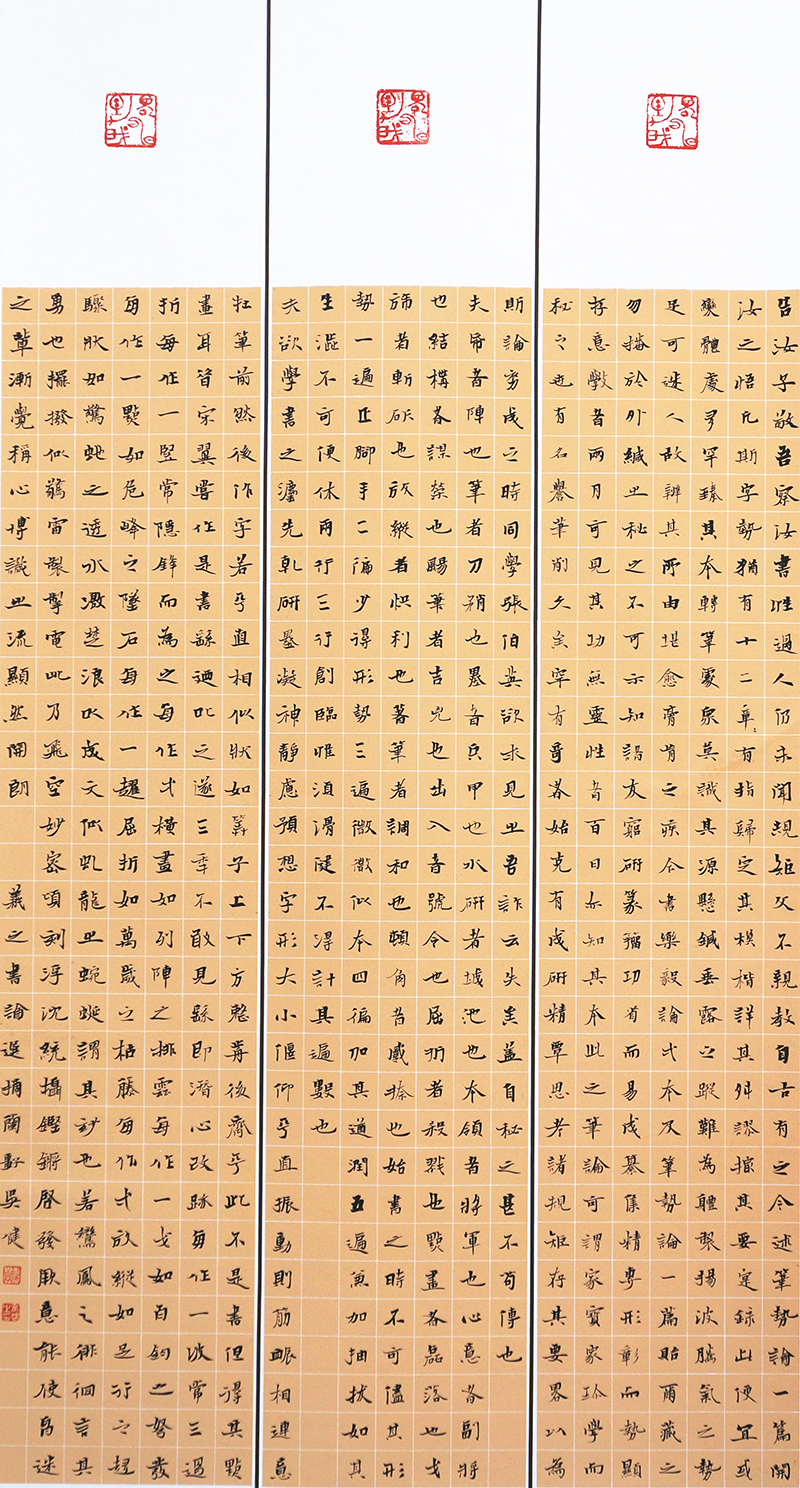 告汝子敬吾察汝書性過人仍未閑規矩父不親教自古有之今述筆勢論一篇開
汝之悟凡斯字勢猶有十二章:有指歸定其模楷詳其舛謬撮其要定錄此便宜或
變體處多罕臻其本轉筆處眾莫識其源懸鍼垂露之蹤難為體製揚波騰氣之勢
足可迷人故辨其所由堪愈膏肓之疾今書樂毅論弌本及筆勢論一篇貽爾藏之
勿播於外緘之秘之不可示知諸友窮研篆籀功省而易成纂集精專形彰而勢顯
存意學者兩月可見其功無靈性者百日亦知其本此之筆論可謂家寶家珍學而
秘之世有名譽筆削久矣罕有奇者始克有成研精覃思考諸規矩存其要略以為
斯論窮成之時同學張伯英欲求見之吾詐云失矣蓋自秘之甚不苟傳也
夫帋者陣也筆者刀矟也墨者兵甲也水研者城池也本領者將軍也心意者副將
也結構者謀策也颺筆者吉凶也出入者號令也屈折者殺戮也點畫者磊落也戈
旆者斬斫也放縱者快利也著筆者調和也頓角者蹙捺也始書之時不可儘其形
勢一遍正腳手二徧少得形勢三遍微微似本四徧加其遒潤五遍兼加抽拔如其
生澀不可便休兩行三行創臨惟須滑健不得計其遍數也
夫欲學書之灋先乾研墨凝神靜慮預想字形大小偃仰平直振動則筋脈相連意
在筆前然後作字若平直相似狀如筭子上下方整前後齊平此不是書但得其點
畫耳昔宋翼嘗作是書繇迺叱之遂三年不敢見繇即潛心改跡每作一波常三過
折每作一竪常隱鋒而為之每作弌橫畫如列陣之排雲每作一戈如百鈞之弩發
每作一點如危峰之墜石每作一趯屈折如萬歲之枯藤每作弌放縱如足行之趨
驟狀如驚蛇之透水激楚浪以成文似虬龍之蜿蜒謂其妙也若鸞鳳之徘徊言其
勇也擺撥似驚雷掣電此乃飛空妙密頃刻浮沈統攝鏗鏘啓發厥意能使昏迷
之輩漸覺稱心博識之流顯然開朗
羲之書論選摘蘭吳健